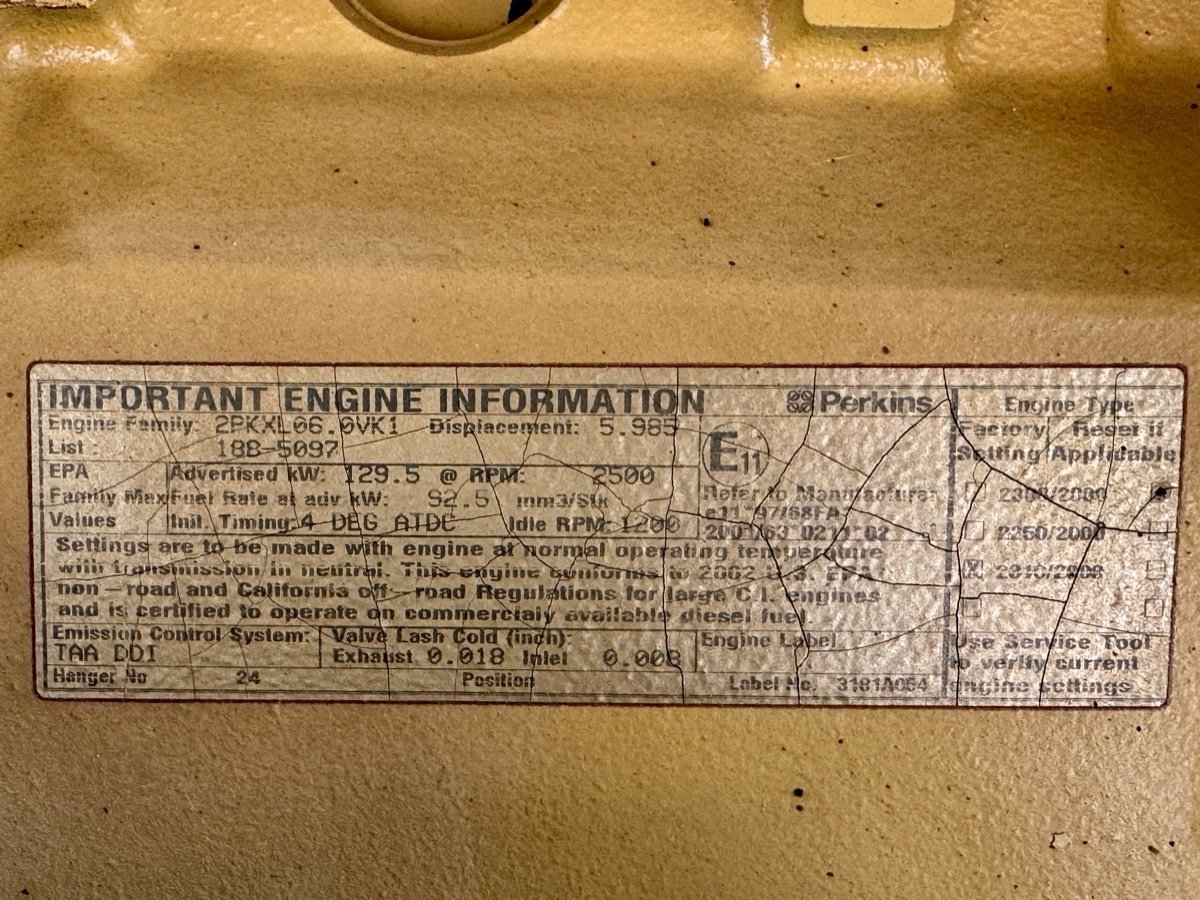 IMPORTANT ENGINE INFORMATION
Perkins
Engine Family: 2PKXL06.0VK1 Displacement: 5.985
List : 188-5097
E11
EPA Family Max Values
Advertised kW: 129.5 @ RPM: 2500
Fuel Rate at adv kW: 92.5 mm3/Stk
Init. Timing: 4 DEG ATDC Idle RPM: 1200
Refer to Manufacturer
e11*97/68FA*
2001/63*0211*02
Settings are to be made with engine at normal operating temperature
with transmission in neutral. This engine conforms to 2002 U.S. EPA
non-road and California off-road Regulations for large C.I. engines
and is certified to operate on commercially available diesel fuel.
Emission Control System:
TAA DDI
Valve Lash Cold (inch):
Exhaust 0.018 Inlet 0.008
Engine Label
Hanger No 24 Position Label No. 3181A064
Engine Type
Factory Setting
Reset if Applicable
2250/2000
Use Service Tool
to verify current
engine settings